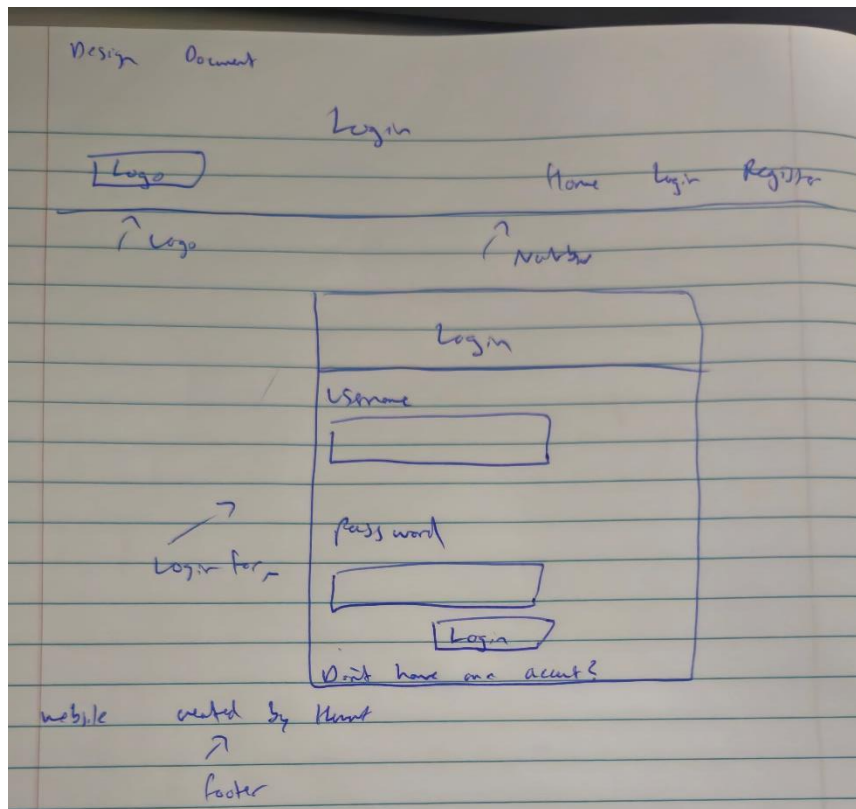 Design Document
Login
Logo Home Login Register
Logo Navbar
Login
Username
password
Login for
Login
Don't have an account?
website created by
footer